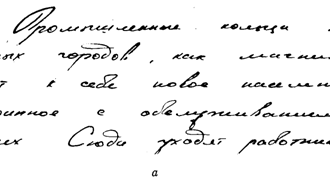 Промышленные кольца
ных городов, как магни
т к себе новое населе
ринное с обслуживанием
ех Сюда уходят работни
а